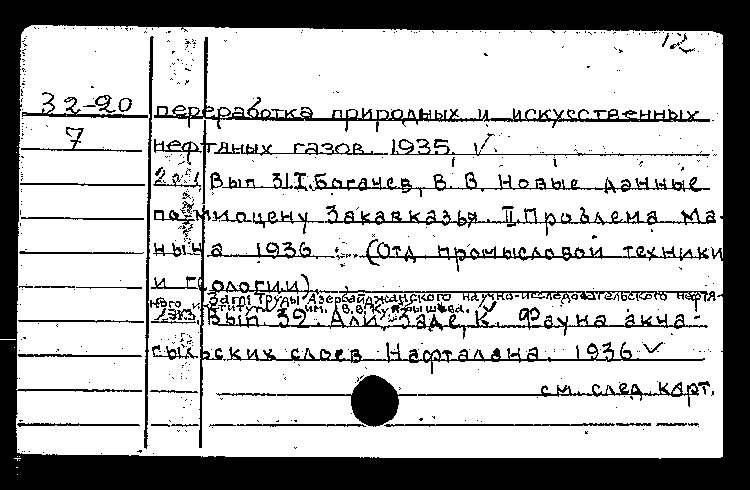 12
32-20 переработка природных и искусственных
7 нефтяных газов. 1935. ✓
Вып. 31. I. Богачев, В. В. Новые данные
по миоцену Закавказья. II. Проблема Ма-
ныча 1936. (Отд. промысловой техники
и геологии).
Загл: Труды Азербайджанского научно-исследовательского нефтя-
ного института им. В.В. Куйбышева.
2экз. Вып. 32. Али-Заде, К. Фауна акча-
гыльских слоев Нафталана. 1936. ✓
см. след. карт.